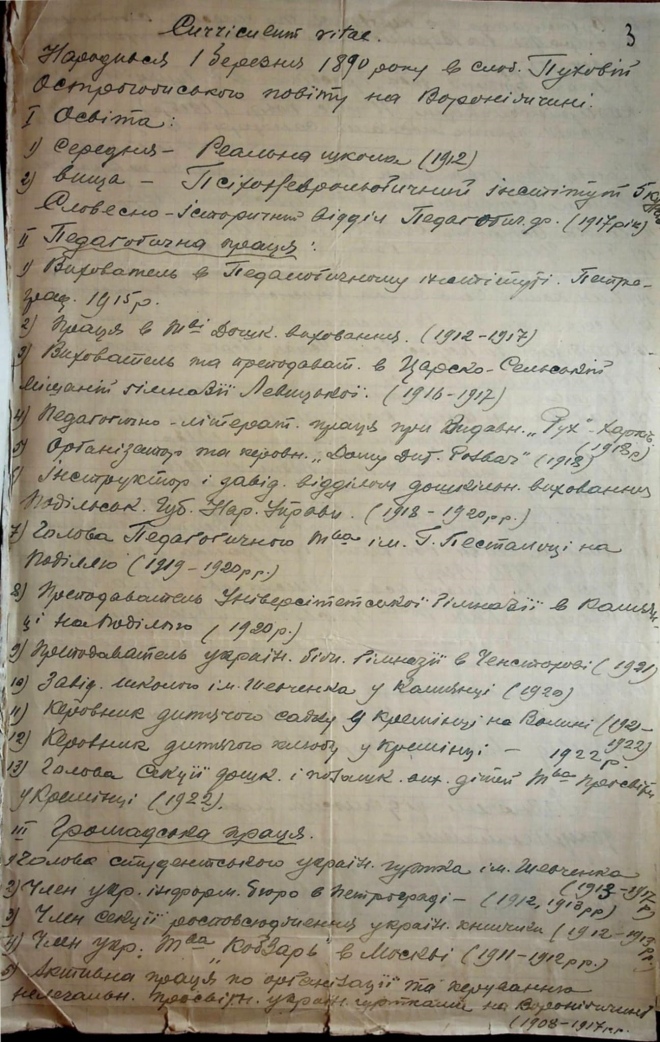 3
Curriculum vitae.
Народився 1 березня 1890 року в слоб. Пуховій
Острогожського повіту на Вороніжчині.
I Освіта:
1) Середня – Реальна школа (1912)
2) вища – Псіхоневрольогичний інститут 5 курс
Словесно-історичний відділ Педагогіч. ф. (1917 рік)
II Педагогічна праця:
1) Вихователь в Педагогичному інституті. Петро-
град. 1915 р.
2) Праця в Т-ві Дошк. виховання. (1912–1917)
3) Вихователь та преподават. в Царско-Сельській
міщаній гімназії Левицької. (1916–1917)
4) Педагогично-літерат. праця при Видавн. „Рух" – Харків.
(1918 р)
5) Організатор та керовн. „Дому Дит. Розваг" (1918)
6) Інструктор і завід. відділом дошкільн. виховання
Подільськ. Губ. Нар. Управи. (1918–1920 р.р.)
7) Голова Педагогичного Т-ва ім. Г. Песталоці на
Поділлю (1919–1920 р.р.)
8) Преподаватель Університетської Гімназії в Камян-
ці на Поділлю (1920 р.)
9) Преподаватель україн. біжн. Гімназії в Ченстохові (1921)
10) Завід. школою ім. Шевченка у Камянці (1920)
11) Керовник дитячого садку у Кремінці на Волині (1921–
1922)
12) Керовник дитячого клюбу у Кремінці – 1922 р.
13) Голова Секції дошк. і позашк. вих. дітей Т-ва Просвіти
у Кремінці (1922).
III Громадська праця.
1) Голова студентського україн. гуртка ім. Шевченка
(1913–1917 р)
2) Член укр. інформ. бюро в Петрограді – (1912, 1913 рр)
3) Член секції росповсюдження україн. книжки (1912–1913
рр.)
4) Член укр. Т-ва „Кобзарь" в Москві (1911–1912 р.р.)
5) Активна праця по організації та керуванню
нелегальн. просвітн. україн. гуртками на Вороніжчині
(1908–1917 р.р.